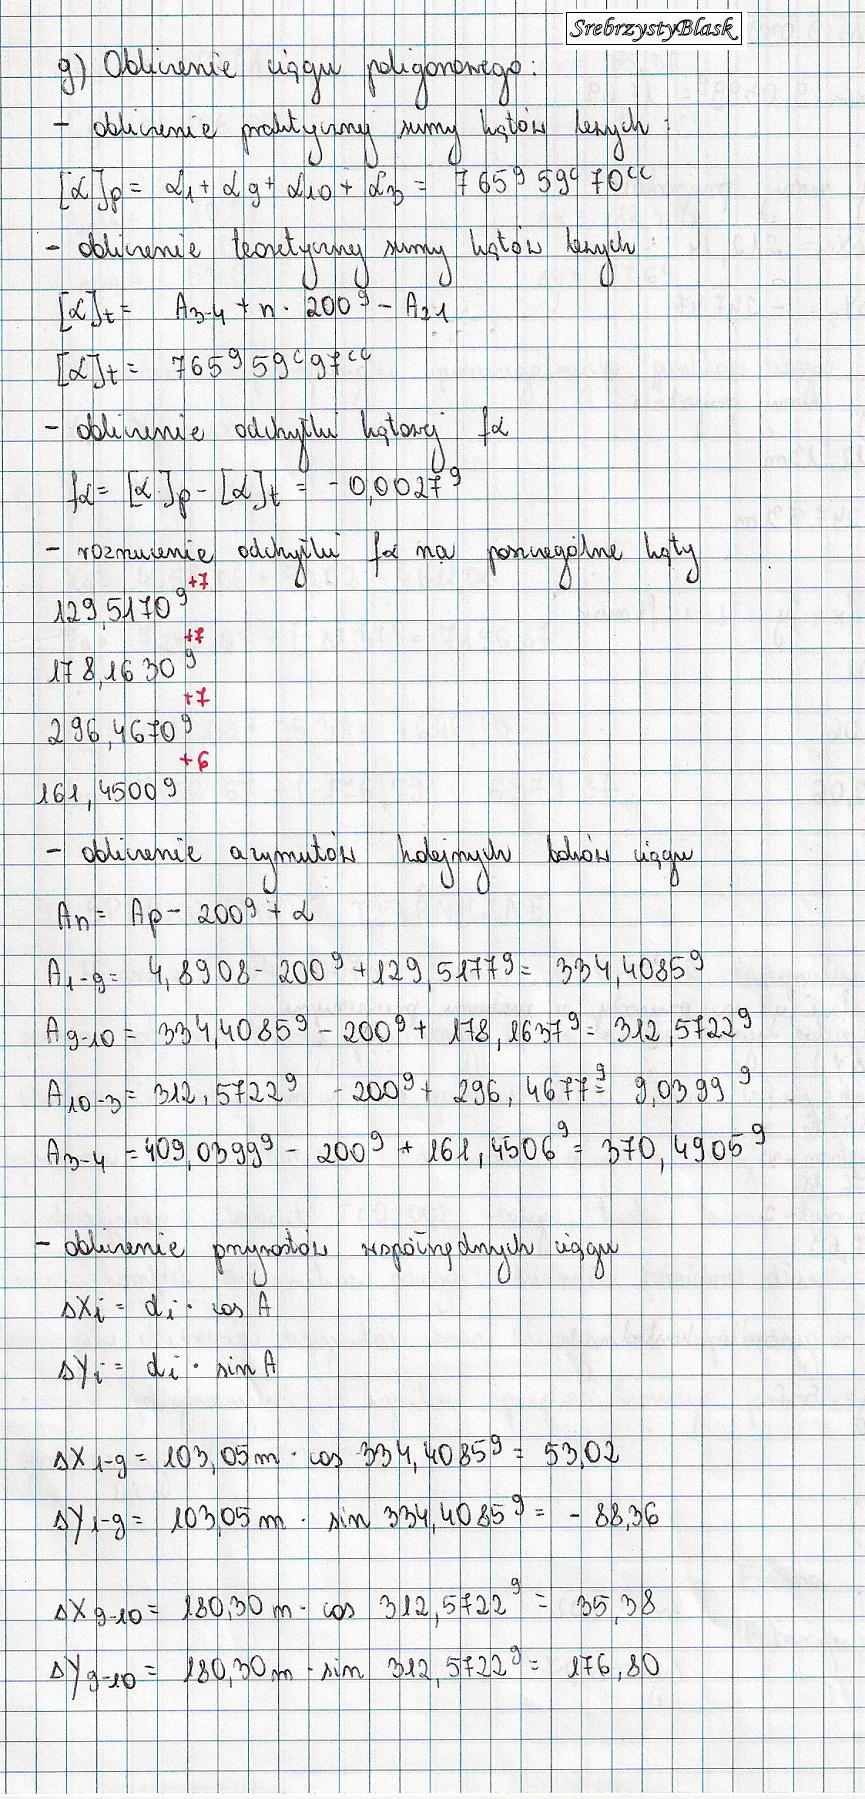 SrebrzystyBlask
g) Obliczenie ciągu poligonowego:
- obliczenie praktycznej sumy kątów lewych:
[α]p = α1 + α9 + α10 + α3 = 765g 59c 70cc
- obliczenie teoretycznej sumy kątów lewych:
[α]t = A3-4 + n · 200g - A21
[α]t = 765g 59c 97cc
- obliczenie odchyłki kątowej fα
fα = [α]p - [α]t = -0,0027g
- rozrzucenie odchyłki fα na poszczególne kąty
129,5170g +7
178,1630g +7
296,4670g +7
161,4500g +6
- obliczenie azymutów kolejnych boków ciągu
An = Ap - 200g + α
A1-9 = 4,8908 - 200g + 129,5177g = 334,4085g
A9-10 = 334,4085g - 200g + 178,1637g = 312,5722g
A10-3 = 312,5722g - 200g + 296,4677g = 9,0399g
A3-4 = 409,0399g - 200g + 161,4506g = 370,4905g
- obliczenie przyrostów współrzędnych ciągu
ΔXi = di · cos A
ΔYi = di · sin A
ΔX1-9 = 103,05m · cos 334,4085g = 53,02
ΔY1-9 = 103,05m · sin 334,4085g = -88,36
ΔX9-10 = 180,30m · cos 312,5722g = 35,38
ΔY9-10 = 180,30m · sin 312,5722g = 176,80